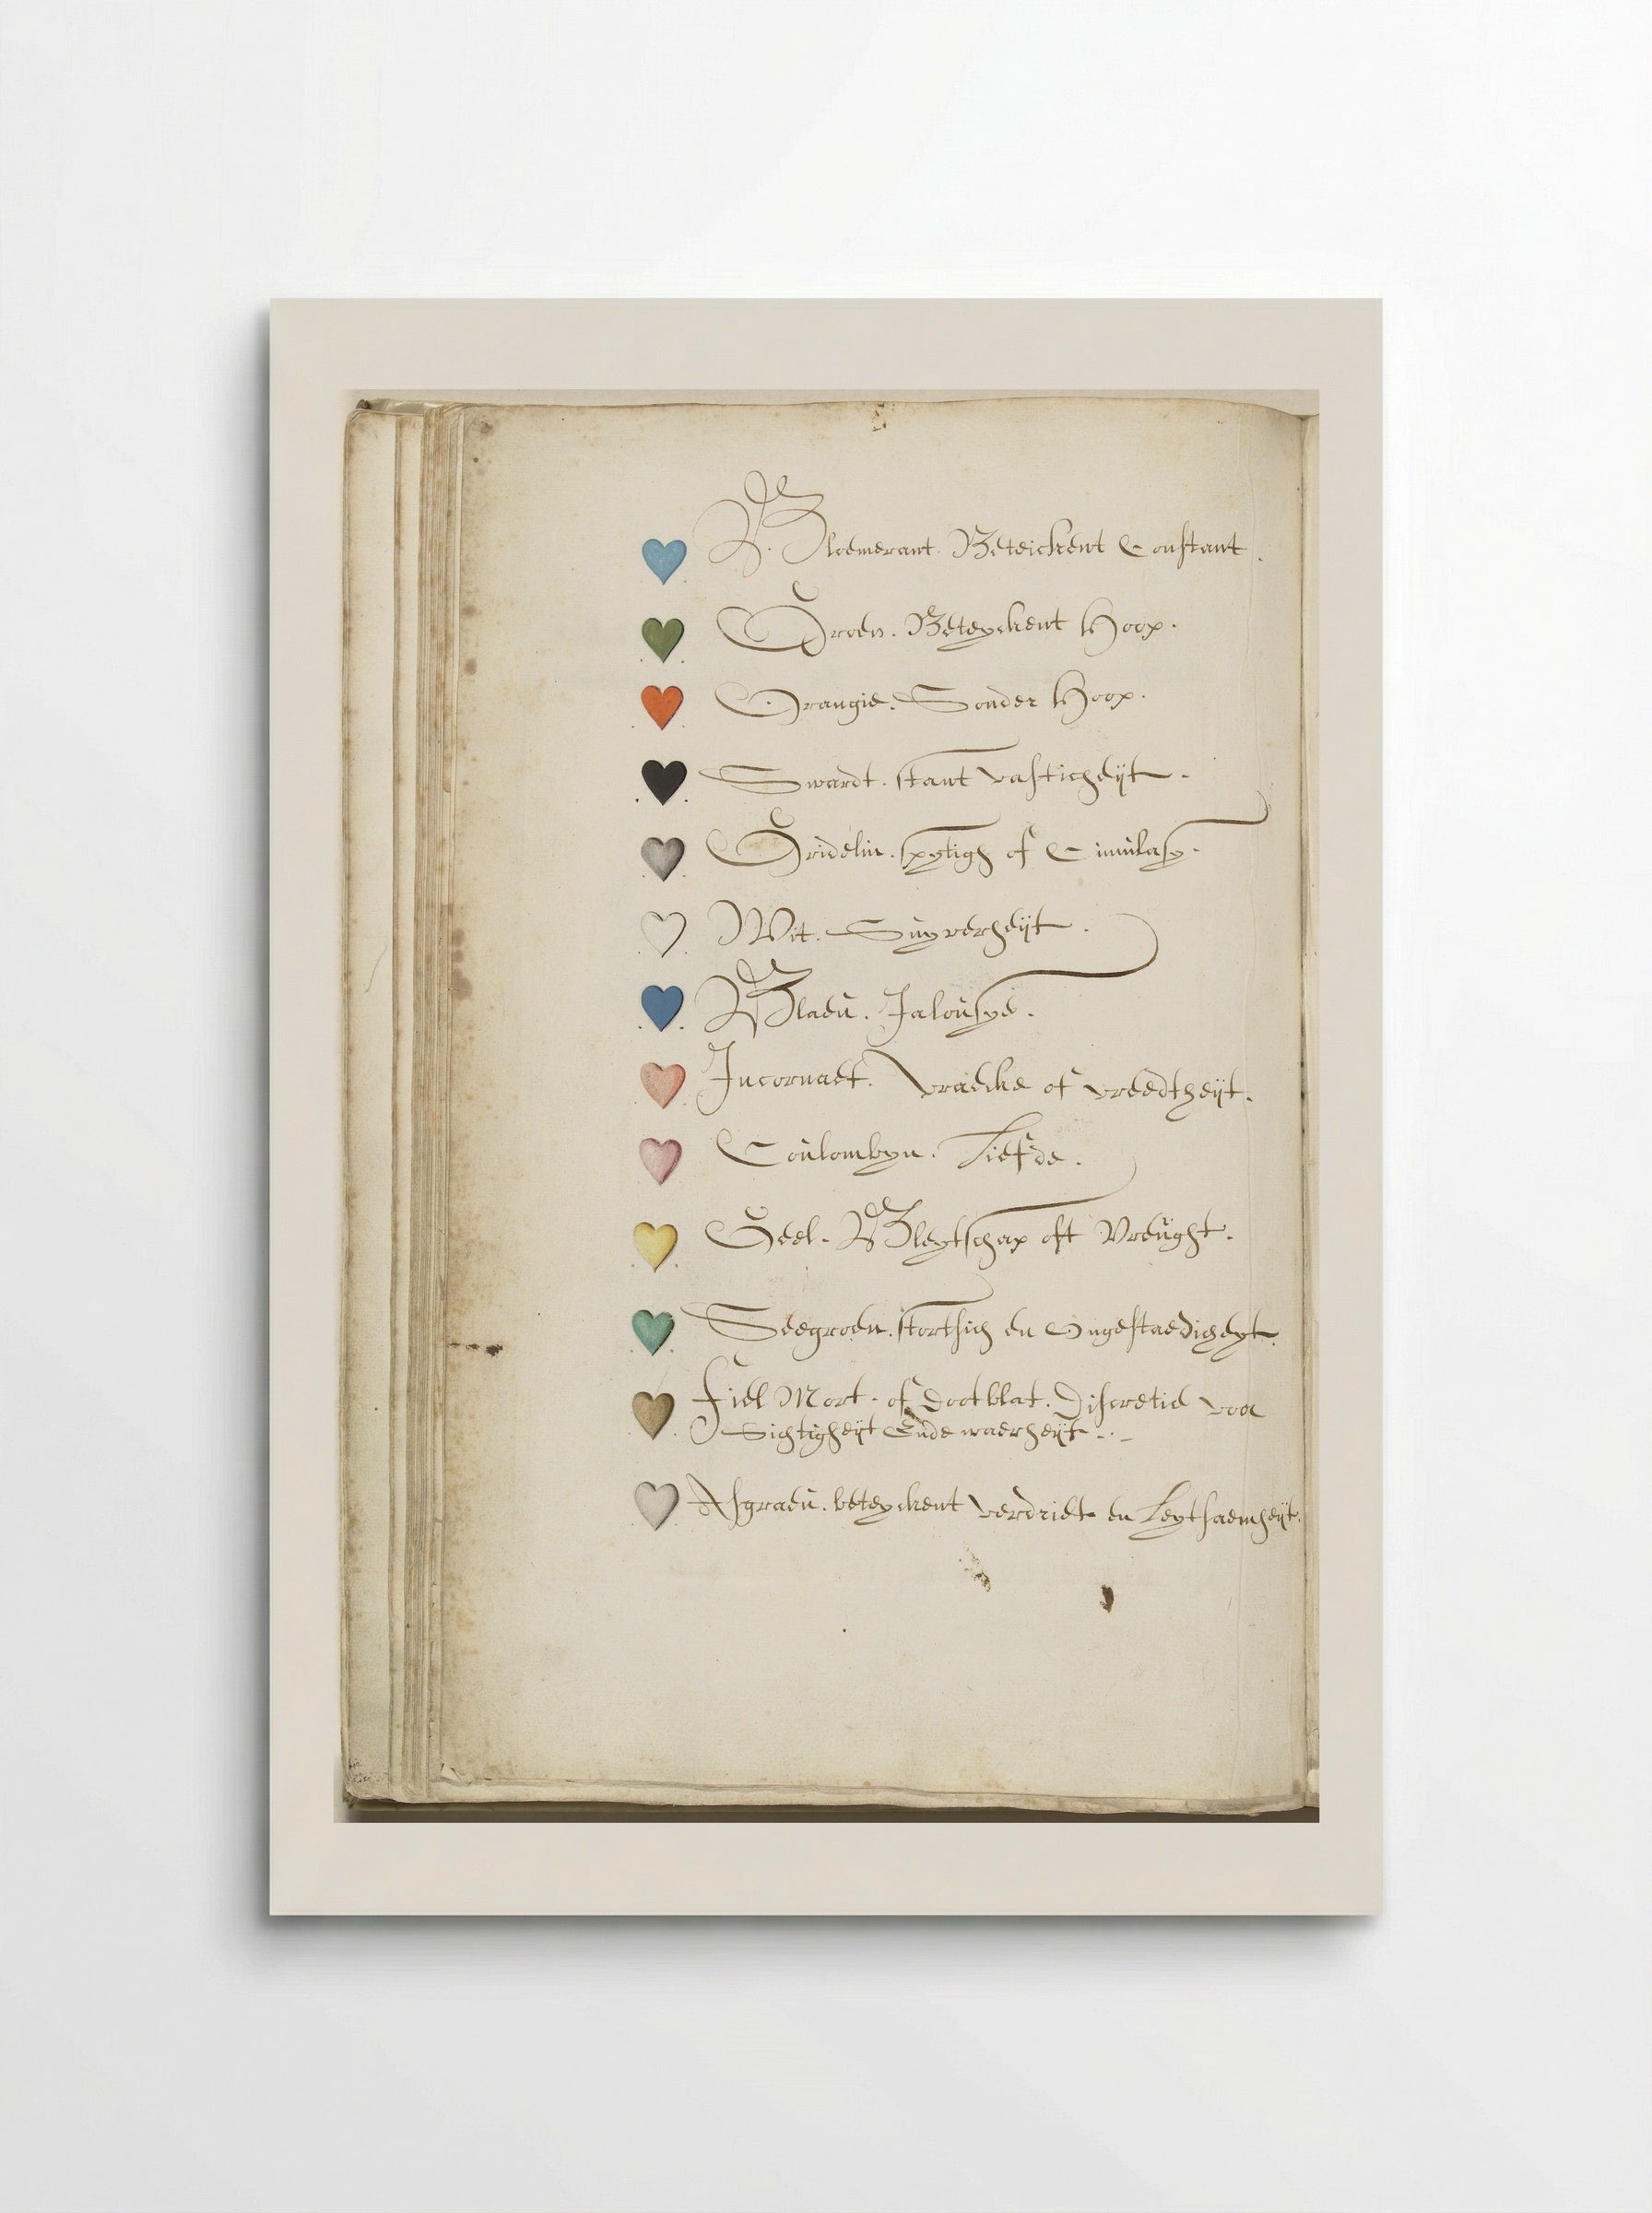 Bloemerant. Beteickent Constant.
Groen. Beteyckent Hoop.
Orangie. Sonder Hoop.
Swardt. stant vasticheijt.
Gridelin. spytigh of Cimulasy.
Wit. Suyverheijt.
Blaeu. Jalousye.
Incornaet. Vraecke of vreedtheijt.
Coulombyn. Liefde.
Geel. Bleytschap oft Vreught.
Seegroen. stortsich en Ongestaedicheyt.
Fiel Mort. of dootblat. Discretie voor
Sichtigheijt Ende waerheijt.
Asgraeu. beteyckent verdriet en Leytsaemheijt.